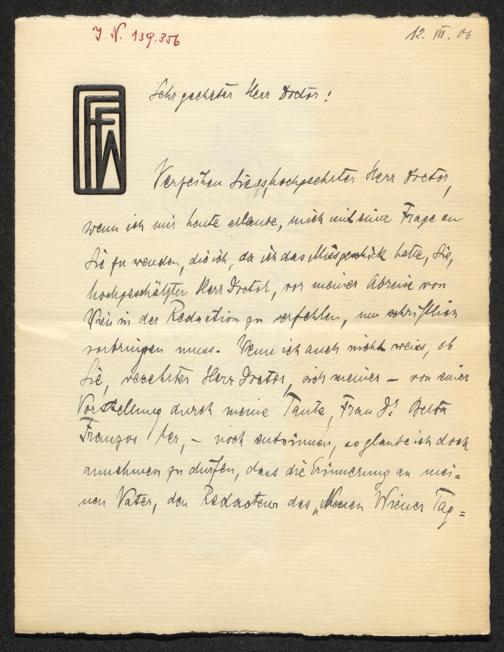 J. N. 139.356
12. VII. 06
FFW
Sehr geehrter Herr Doctor!
Verzeihen Sie es, hochgeehrter Herr Doctor,
wenn ich mir heute erlaube, mich mit einer Frage an
Sie zu wenden, die ich, da ich das Missgeschick hatte, Sie,
hochgeschätzter Herr Doctor, vor meiner Abreise von
Wien in der Redaction zu verfehlen, nun schriftlich
vorbringen muss. Wenn ich auch nicht weiss, ob
Sie, verehrter Herr Doctor, sich meiner – von einer
Vorstellung durch meine Tante, Frau Dr. Bertha
Franzos her, – noch entsinnen, so glaube ich doch
annehmen zu dürfen, dass die Erinnerung an mei=
nen Vater, den Redacteur des „Neuen Wiener Tag=